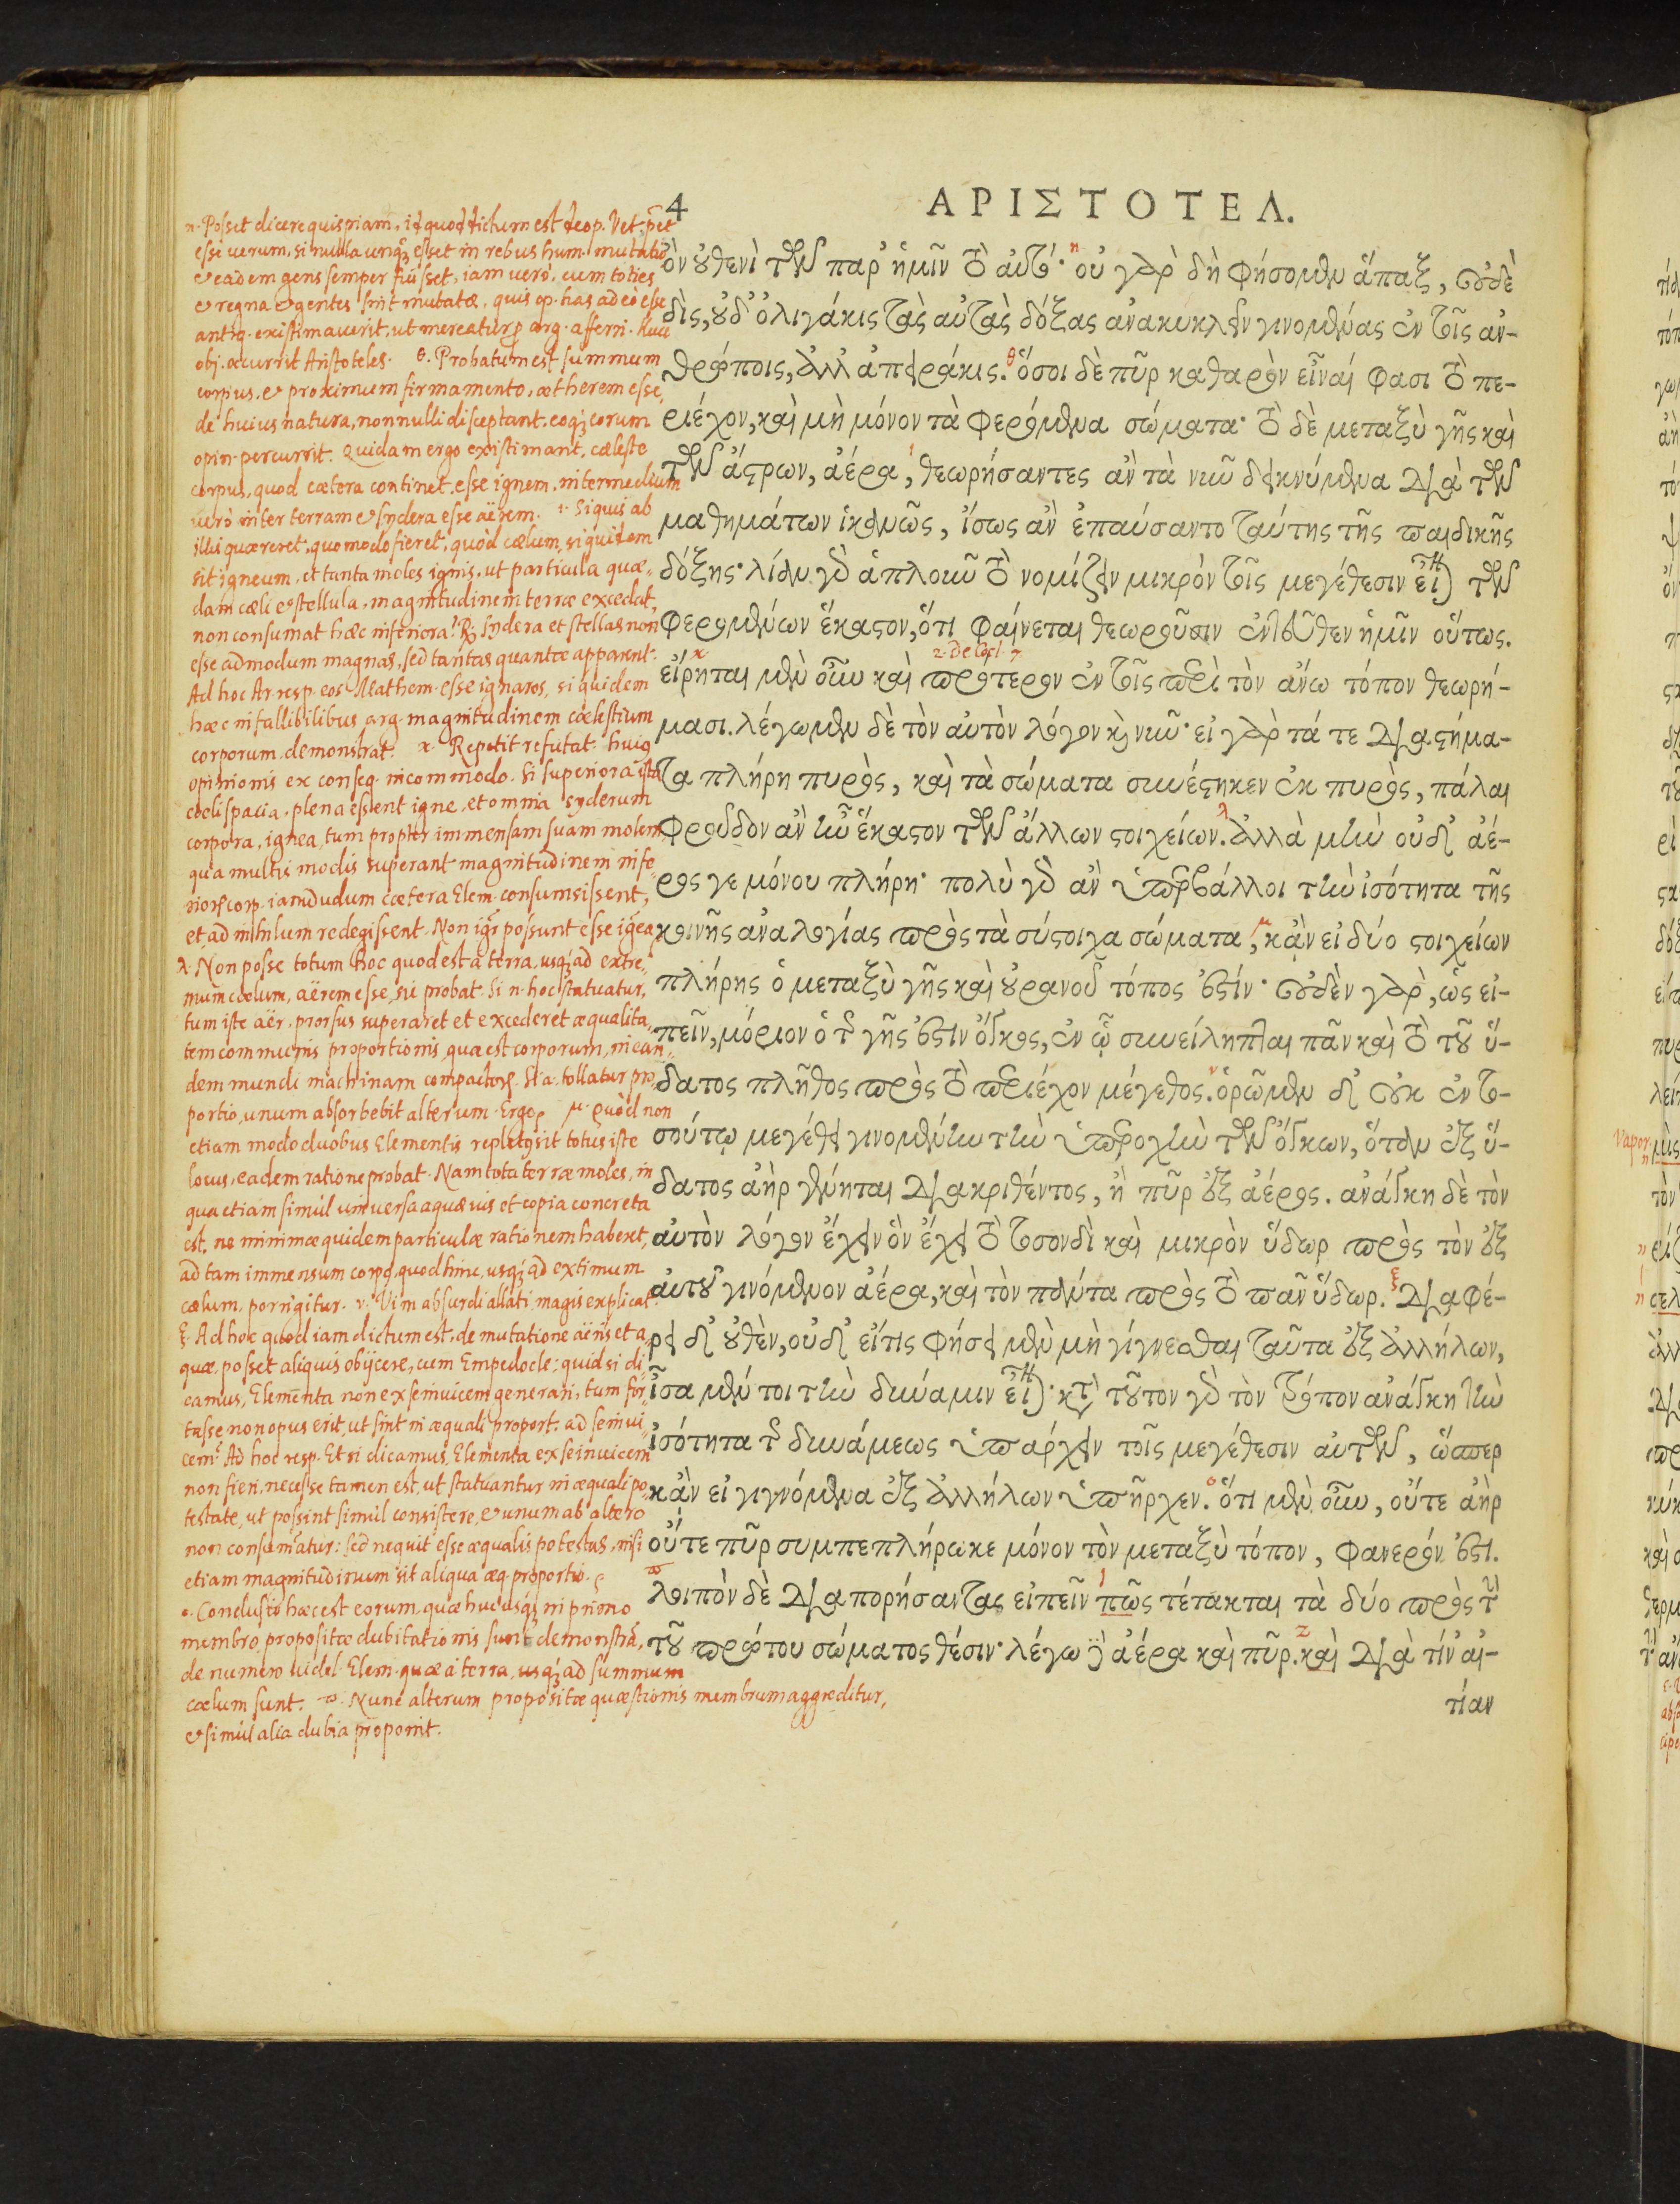 4
ΑΡΙΣΤΟΤΕΛ.
ὂν οὐθενὶ τῶν παρ᾽ ἡμῖν τὸ αὐτό· οὐ γὰρ δὴ φήσομεν ἅπαξ, οὐδὲ
δὶς, οὐδ᾽ ὀλιγάκις τὰς αὐτὰς δόξας ἀνακυκλεῖν γινομένας ἐν τοῖς ἀν-
θρώποις, ἀλλ᾽ ἀπειράκις. ὅσοι δὲ πῦρ καθαρὸν εἶναί φασι τὸ πε-
ριέχον, καὶ μὴ μόνον τὰ φερόμενα σώματα· τὸ δὲ μεταξὺ γῆς καὶ
τῶν ἄστρων, ἀέρα, θεωρήσαντες ἂν τὰ νῦν δεικνύμενα διὰ τῶν
μαθημάτων ἱκανῶς, ἴσως ἂν ἐπαύσαντο ταύτης τῆς παιδικῆς
δόξης· λίαν γὰρ ἁπλοῦν τὸ νομίζειν μικρὸν τοῖς μεγέθεσιν εἶναι τῶν
φερομένων ἕκαστον, ὅτι φαίνεται θεωροῦσιν ἐντεῦθεν ἡμῖν οὕτως.
2. de Cœl. 7
εἴρηται μὲν οὖν καὶ πρότερον ἐν τοῖς περὶ τὸν ἄνω τόπον θεωρή-
μασι. λέγωμεν δὲ τὸν αὐτὸν λόγον καὶ νῦν· εἰ γὰρ τά τε διαστήμα-
τα πλήρη πυρὸς, καὶ τὰ σώματα συνέστηκεν ἐκ πυρὸς, πάλαι
φροῦδον ἂν ἦν ἕκαστον τῶν ἄλλων στοιχείων. ἀλλὰ μὴν οὐδ᾽ ἀέ-
ρος γε μόνου πλήρη· πολὺ γὰρ ἂν ὑπερβάλλοι τὴν ἰσότητα τῆς
κοινῆς ἀναλογίας πρὸς τὰ σύστοιχα σώματα, κἂν εἰ δύο στοιχείων
πλήρης ὁ μεταξὺ γῆς καὶ οὐρανοῦ τόπος ἐστίν· οὐδὲν γὰρ, ὡς εἰ-
πεῖν, μόριον ὁ τῆς γῆς ἐστὶν ὄγκος, ἐν ᾧ συνείληπται πᾶν καὶ τὸ τοῦ ὕ-
δατος πλῆθος πρὸς τὸ περιέχον μέγεθος. ὁρῶμεν δ᾽ οὐκ ἐν το-
σούτῳ μεγέθει γινομένην τὴν ὑπεροχὴν τῶν ὄγκων, ὅταν ἐξ ὕ-
δατος ἀὴρ γένηται διακριθέντος, ἢ πῦρ ἐξ ἀέρος. ἀνάγκη δὲ τὸν
αὐτὸν λόγον ἔχειν ὃν ἔχει τὸ τοσονδὶ καὶ μικρὸν ὕδωρ πρὸς τὸν ἐξ
αὐτοῦ γινόμενον ἀέρα, καὶ τὸν πάντα πρὸς τὸ πᾶν ὕδωρ. διαφέ-
ρει δ᾽ οὐθὲν, οὐδ᾽ εἴτις φήσει μὲν μὴ γίγνεσθαι ταῦτα ἐξ ἀλλήλων,
ἴσα μέντοι τὴν δύναμιν εἶναι· κατὰ τοῦτον γὰρ τὸν τρόπον ἀνάγκη τὴν
ἰσότητα τῆς δυνάμεως ὑπάρχειν τοῖς μεγέθεσιν αὐτῶν, ὥσπερ
κἂν εἰ γιγνόμενα ἐξ ἀλλήλων ὑπῆρχεν. ὅτι μὲν οὖν, οὔτε ἀὴρ
οὔτε πῦρ συμπεπλήρωκε μόνον τὸν μεταξὺ τόπον, φανερόν ἐστι.
λοιπὸν δὲ διαπορήσαντας εἰπεῖν πῶς τέτακται τὰ δύο πρὸς τὴν
τοῦ πρώτου σώματος θέσιν· λέγω δὲ ἀέρα καὶ πῦρ. καὶ διὰ τίν᾽ αἰ-
τίαν
η. Posset dicere quispiam, id quod dictum est de op. Vet. pet
esse verum, si nulla unq; esset in rebus hum. mutatio
& eadem gens semper fuisset, iam vero, cum toties
& regna & gentes sint mutatæ, quis op. has adeò esse
antiq. existimaverit, ut mereatur pro arg. afferri. huic
obj. occurrit Aristoteles. θ. Probatum est summum
corpus, & proximum firmamento, ætherem esse,
de huius natura, nonnulli disceptant. eoq; eorum
opin. percurrit. Quidam ergo existimant, cæleste
corpus, quod cætera continet, esse ignem, intermedium
vero inter terram & sydera esse aërem. ι. Si quis ab
illis quæreret, quomodo fieret, quòd cælum, siquidem
sit igneum, et tanta moles ignis, ut particula quæ-
dam cæli & stellula, magnitudinem terræ excedat,
non consumat hæc inferiora? R; sydera et stellas non
esse admodum magnas, sed tantas quantæ apparent.
Ad hoc Ar. resp. eos Mathem. esse ignaros, siquidem
hæc infallibilibus arg. magnitudinem cœlestium
corporum demonstrat. κ. Repetit refutat. huius
opinionis ex conseq. incommodo. Si superiora ista
cœli spacia, plena essent igne, et omnia syderum
corpora, ignea, tum propter immensam suam molem,
qua multis modis superant magnitudinem infe-
rior. corp. iamdudum cætera Elem. consumsissent,
et ad nihilum redegissent. Non igr possunt esse ignea.
λ. Non posse totum hoc quod est à terra, usq; ad extre-
mum cœlum, aërem esse, sic probat. Si n. hoc statuatur,
tum iste aër, prorsus superaret et excederet æqualita-
tem communis proportionis, quæ est corporum, in ean-
dem mundi machinam compactor. Si a. tollatur pro-
portio, unum absorbebit alterum. Ergo. μ. Quòd non
etiam modo duobus Elementis repletus sit totus iste
locus, eadem ratione probat. Nam tota terræ moles, in
qua etiam simul universa aquæ vis et copia concreta
est, ne minimæ quidem particulæ rationem haberet,
ad tam immensum corpq, quod hinc, usq; ad extimum
cælum, porrigitur. ν. Vim absurdi allati magis explicat.
ξ. Ad hoc quod iam dictum est, de mutatione aëris et a-
quæ, posset aliquis obijcere, cum Empedocle: quid si di-
camus, Elementa non ex seinvicem generari, tum for-
tasse non opus erit, ut sint in æquali proport. ad seinvi-
cem? Ad hoc resp. Et si dicamus, Elementa ex seinvicem
non fieri, necesse tamen est, ut statuantur in æquali po-
testate, ut possint simul consistere, & unum ab altero
non consumatur: sed nequit esse æqualis potestas, nisi
etiam magnitudinum sit aliqua æq. proportio.
ο. Conclusio hæc est eorum, quæ hucusq; in primo
membro propositæ dubitationis sunt demonstra,
de numero videl. Elem. quæ à terra, usq; ad summum
cælum sunt. π. Nunc alterum propositæ quæstionis membrum aggreditur,
& simul alia dubia proponit.
Vapor.